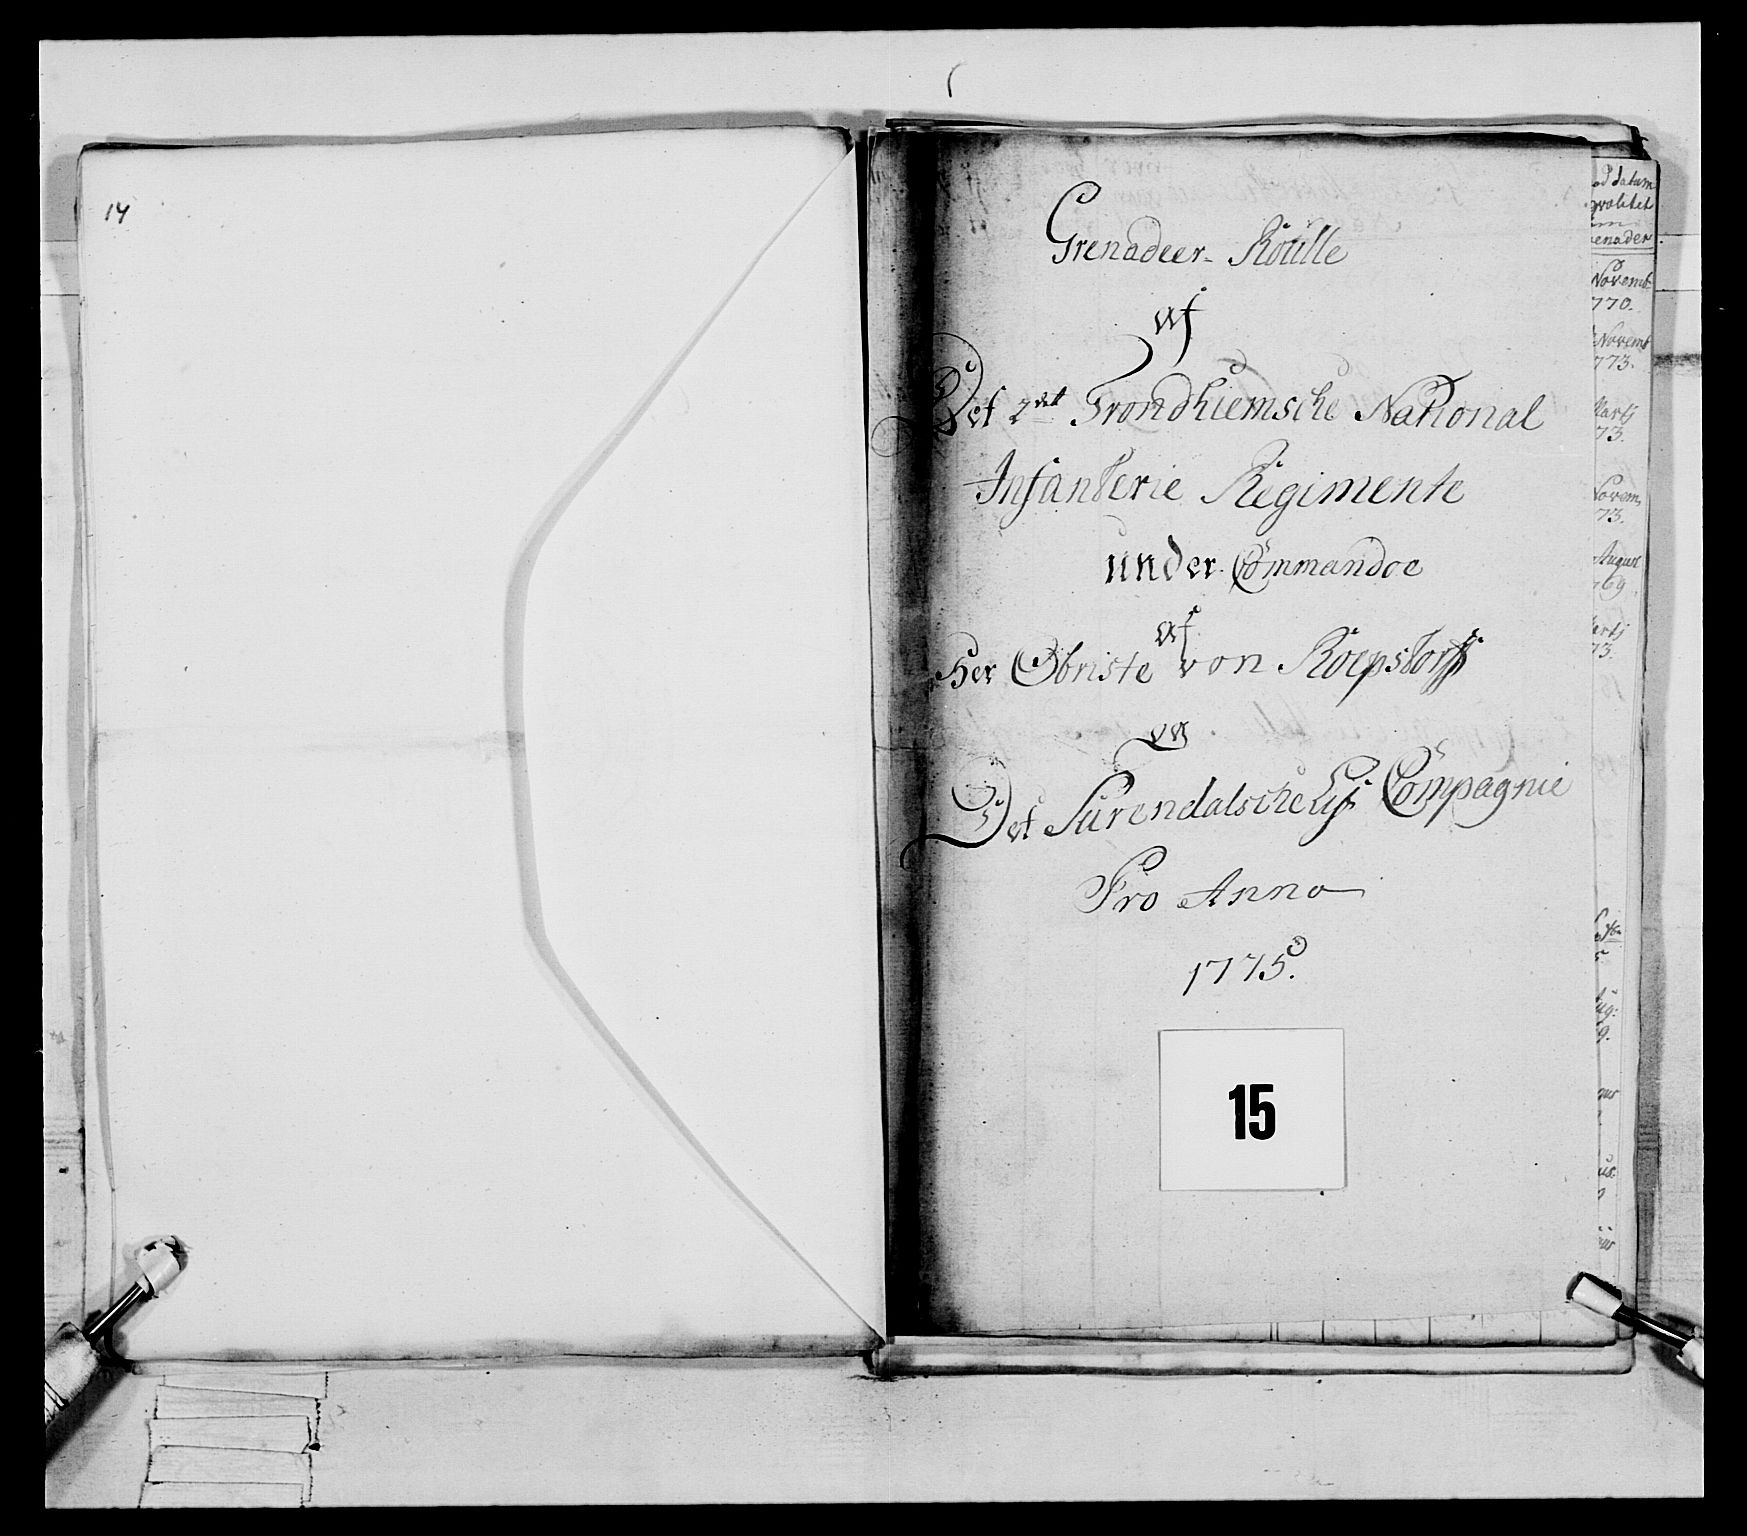 14
Grenadeer-Roulle
Af
Det 2det Trondhiemsche National
Infanterie Regimente
under Commandoe
Af
Her Obriste von Roepstorff
og
Det Surendalsche Lif Compagnie
Pro Anno
1775.
15
datum
qvalitet
Novemb
770.
Novemb
773.
Martj
73.
Novem.
73.
August
69
73.